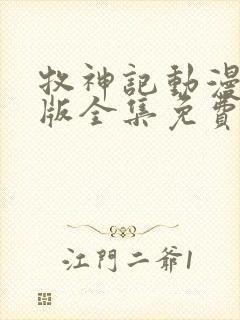 牧神記動漫
版全集免費
江門二爺1